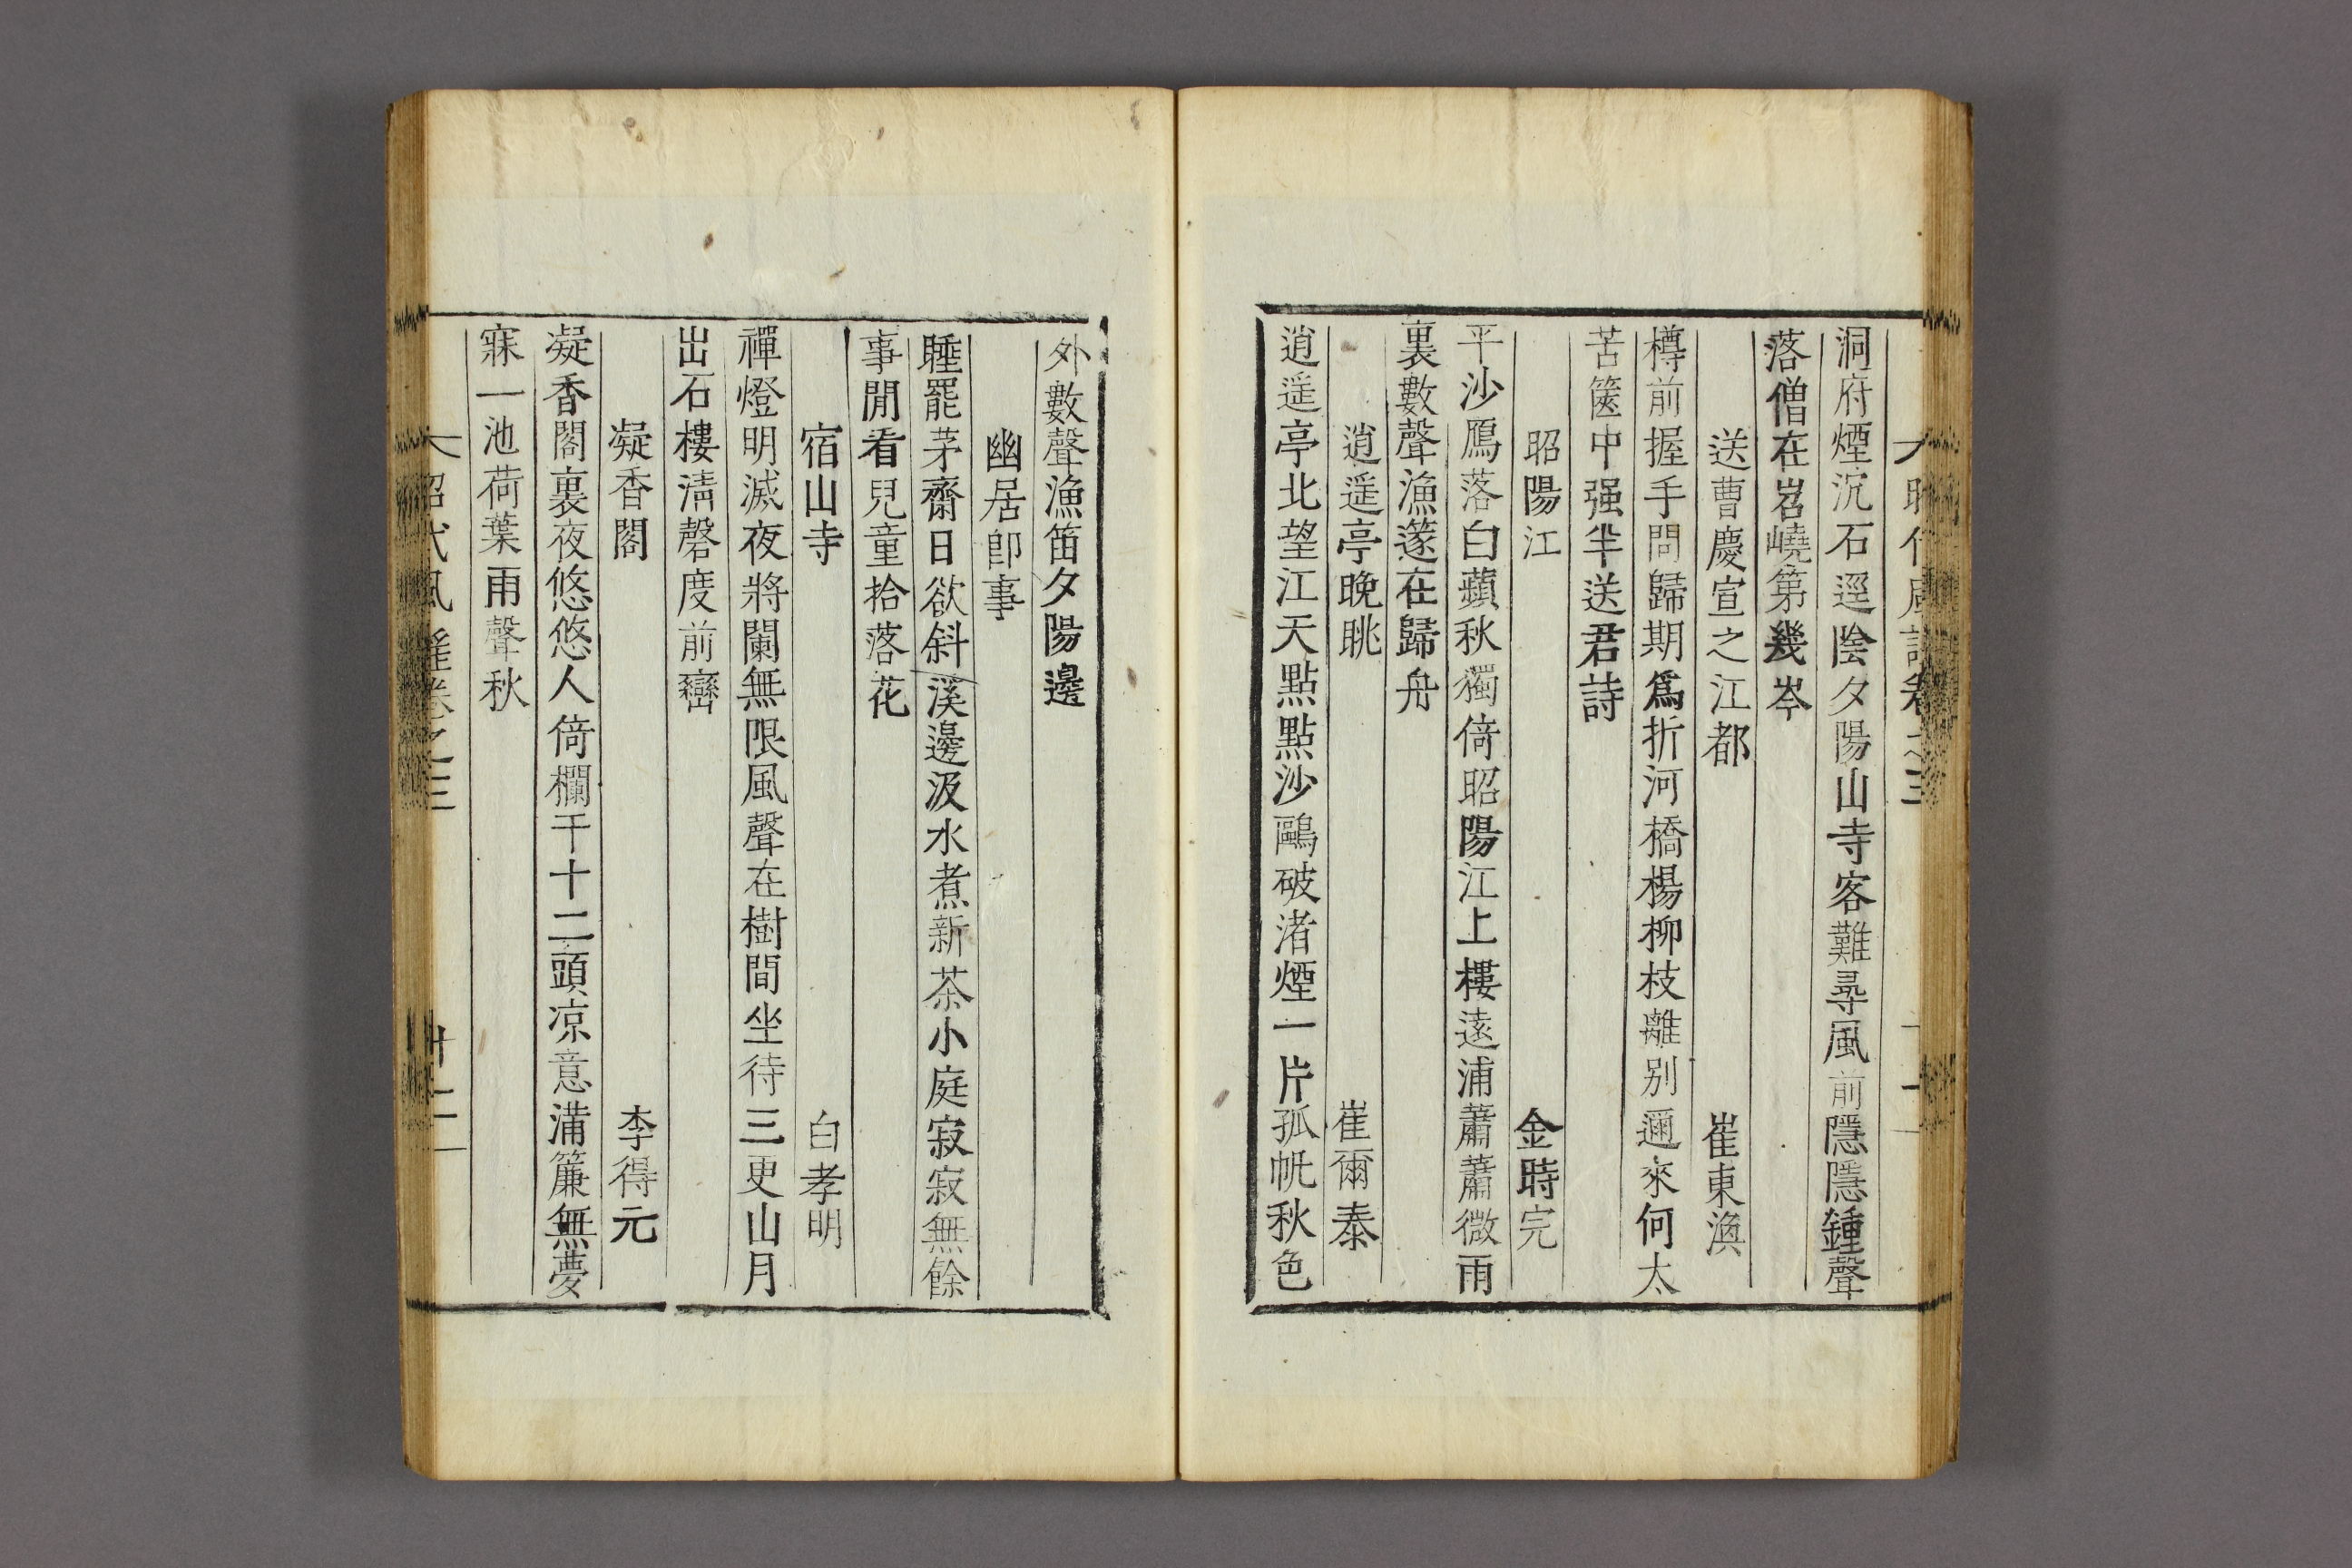 洞府煙沉石逕陰夕陽山寺客難尋風前隱隱鍾聲
落僧在岧嶢第幾岑
送曹慶宣之江都
崔東渙
樽前握手問歸期爲折河橋楊柳枝離别邇來何太
苦篋中强半送君詩
昭陽江
金時完
平沙鴈落白蘋秋獨倚昭陽江上樓遠浦蕭蕭微雨
裏數聲漁篴在歸舟
逍遥亭晚眺
崔爾泰
逍遥亭北望江天點點沙鷗破渚煙一片孤帆秋色
外數聲漁笛夕陽邊
幽居即事
睡罷茅齋日欲斜溪邊汲水煮新茶小庭寂寂無餘
事閒看兒童拾落花
宿山寺
白孝明
禪燈明滅夜將闌無限風聲在樹間坐待三更山月
出石樓清磬度前巒
凝香閣
李得元
凝香閣裏夜悠悠人倚欄干十二頭凉意滿簾無夢
寐一池荷葉雨聲秋
昭代風謡卷之三